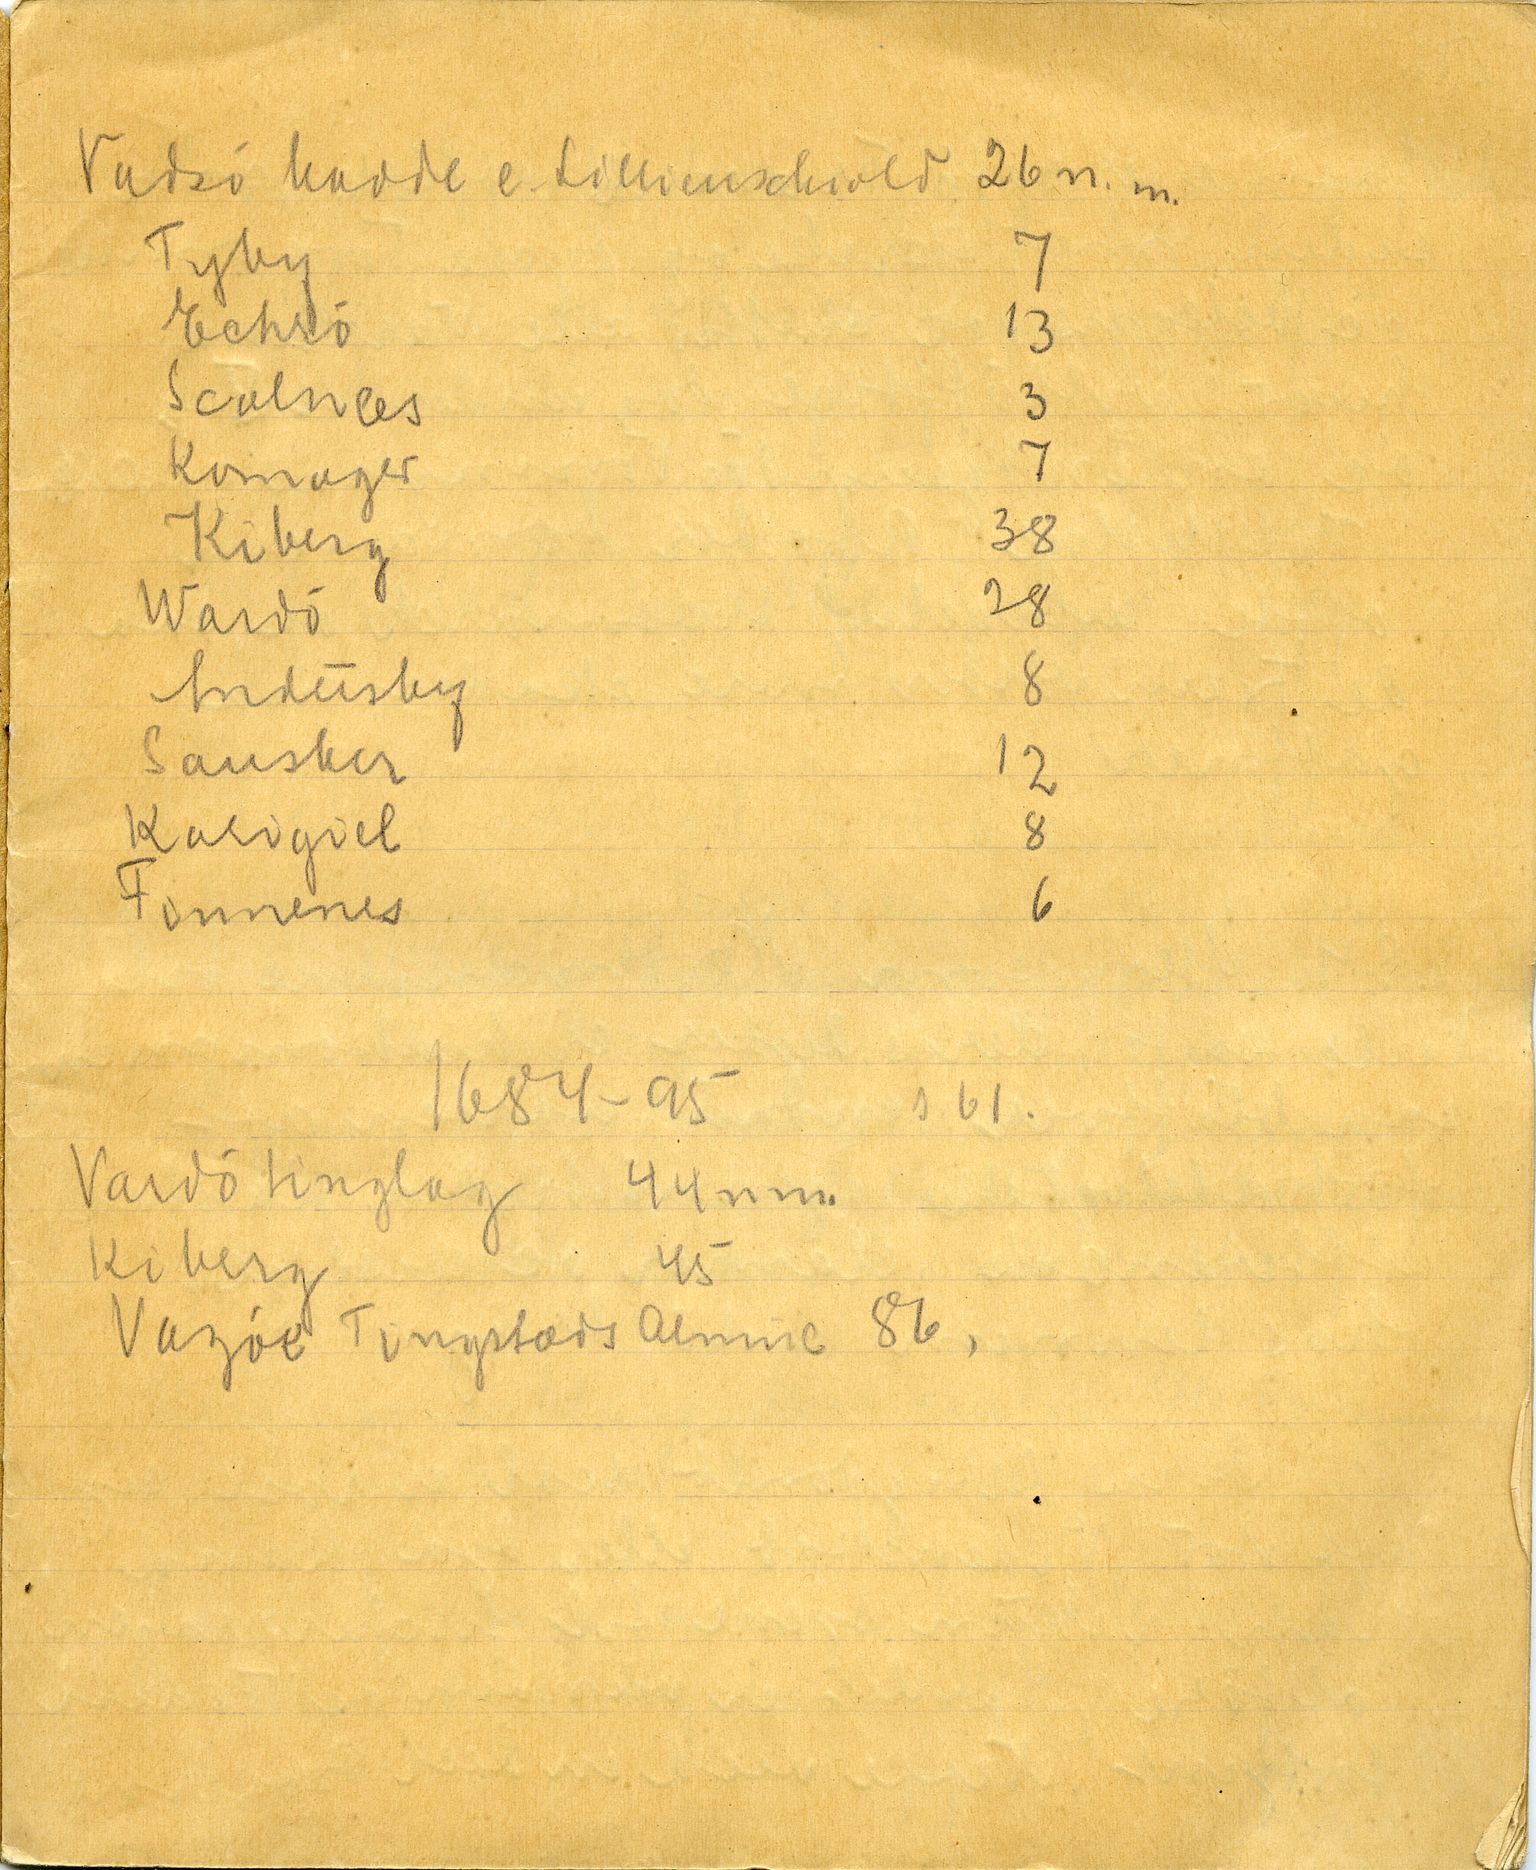 Vadsó hadde e. Lillienschiold 26 n. m.
Tyby 7
Echrió 13
Scalnæs 3
Komager 7
Kiberg 38
Wardó 28
Andersby 8
Sausker 12
Karigiel 8
Finnenes 6
1684-95 s 61.
Vardó tinglag 44 n m.
Kiberg 45
Vazóe Tingstæds Almue 86,